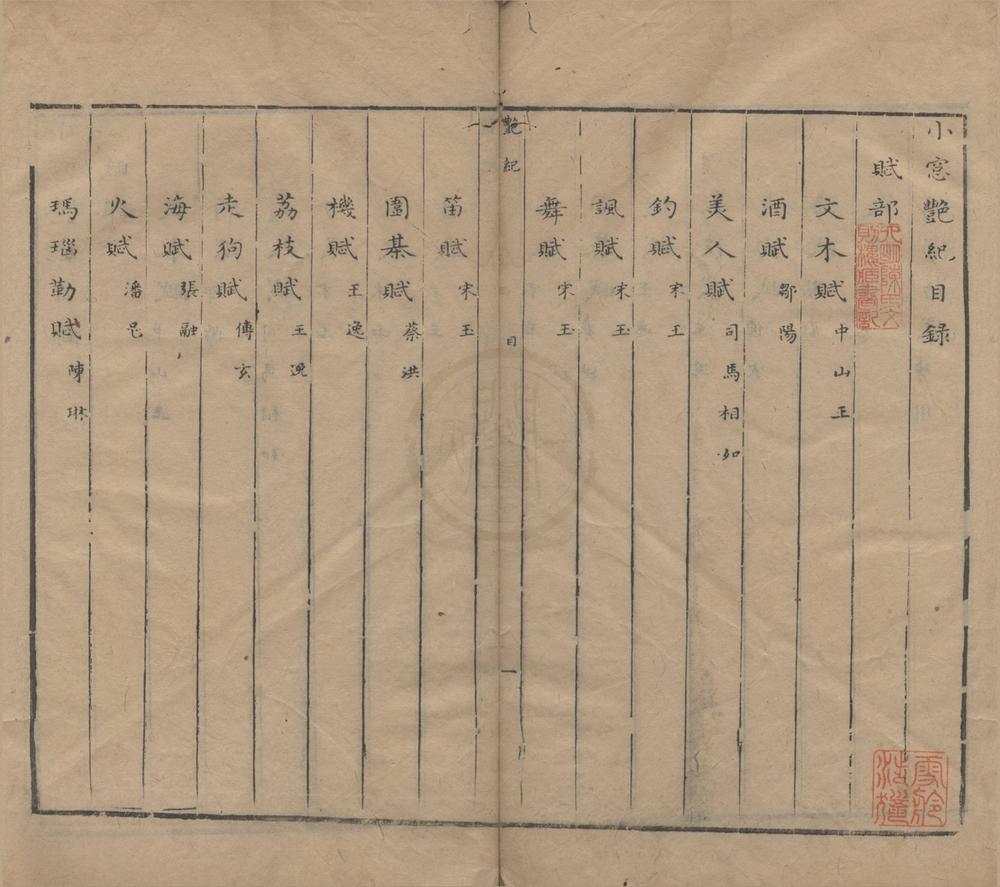 小窓艷紀目錄
賦部
文木賦 中山王
酒賦 鄒陽
美人賦 司馬相如
釣賦 宋玉
諷賦 宋玉
舞賦 宋玉
艷紀 目 一
笛賦 宋玉
圍棊賦 蔡洪
機賦 王逸
荔枝賦 王逸
走狗賦 傅玄
海賦 張融
火賦 潘尼
瑪瑙勤賦 陳琳